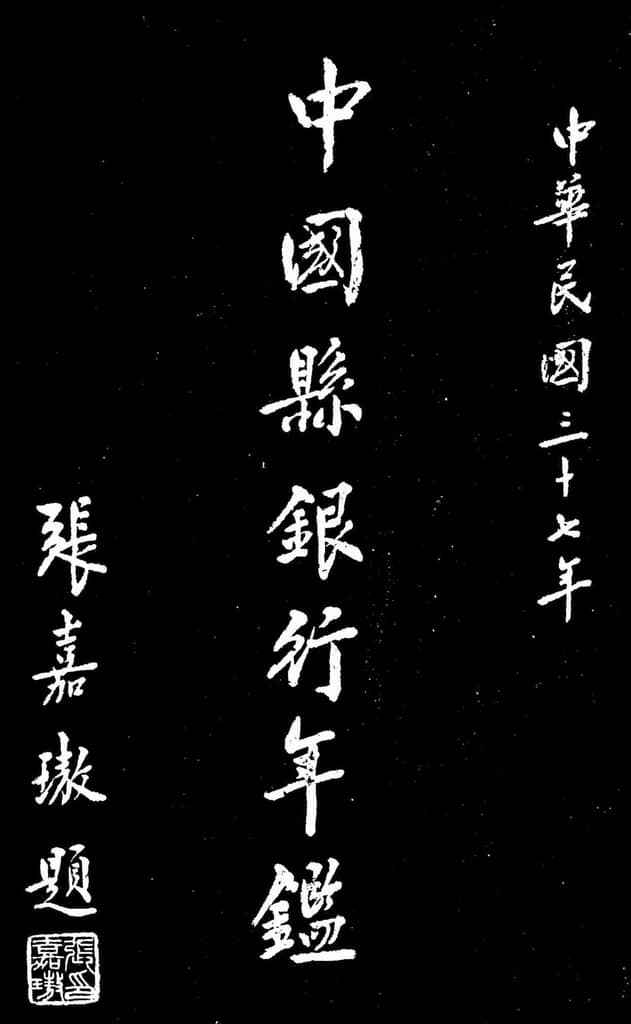 中華民國三十七年
中國縣銀行年鑑
張嘉璈題
張嘉璈印